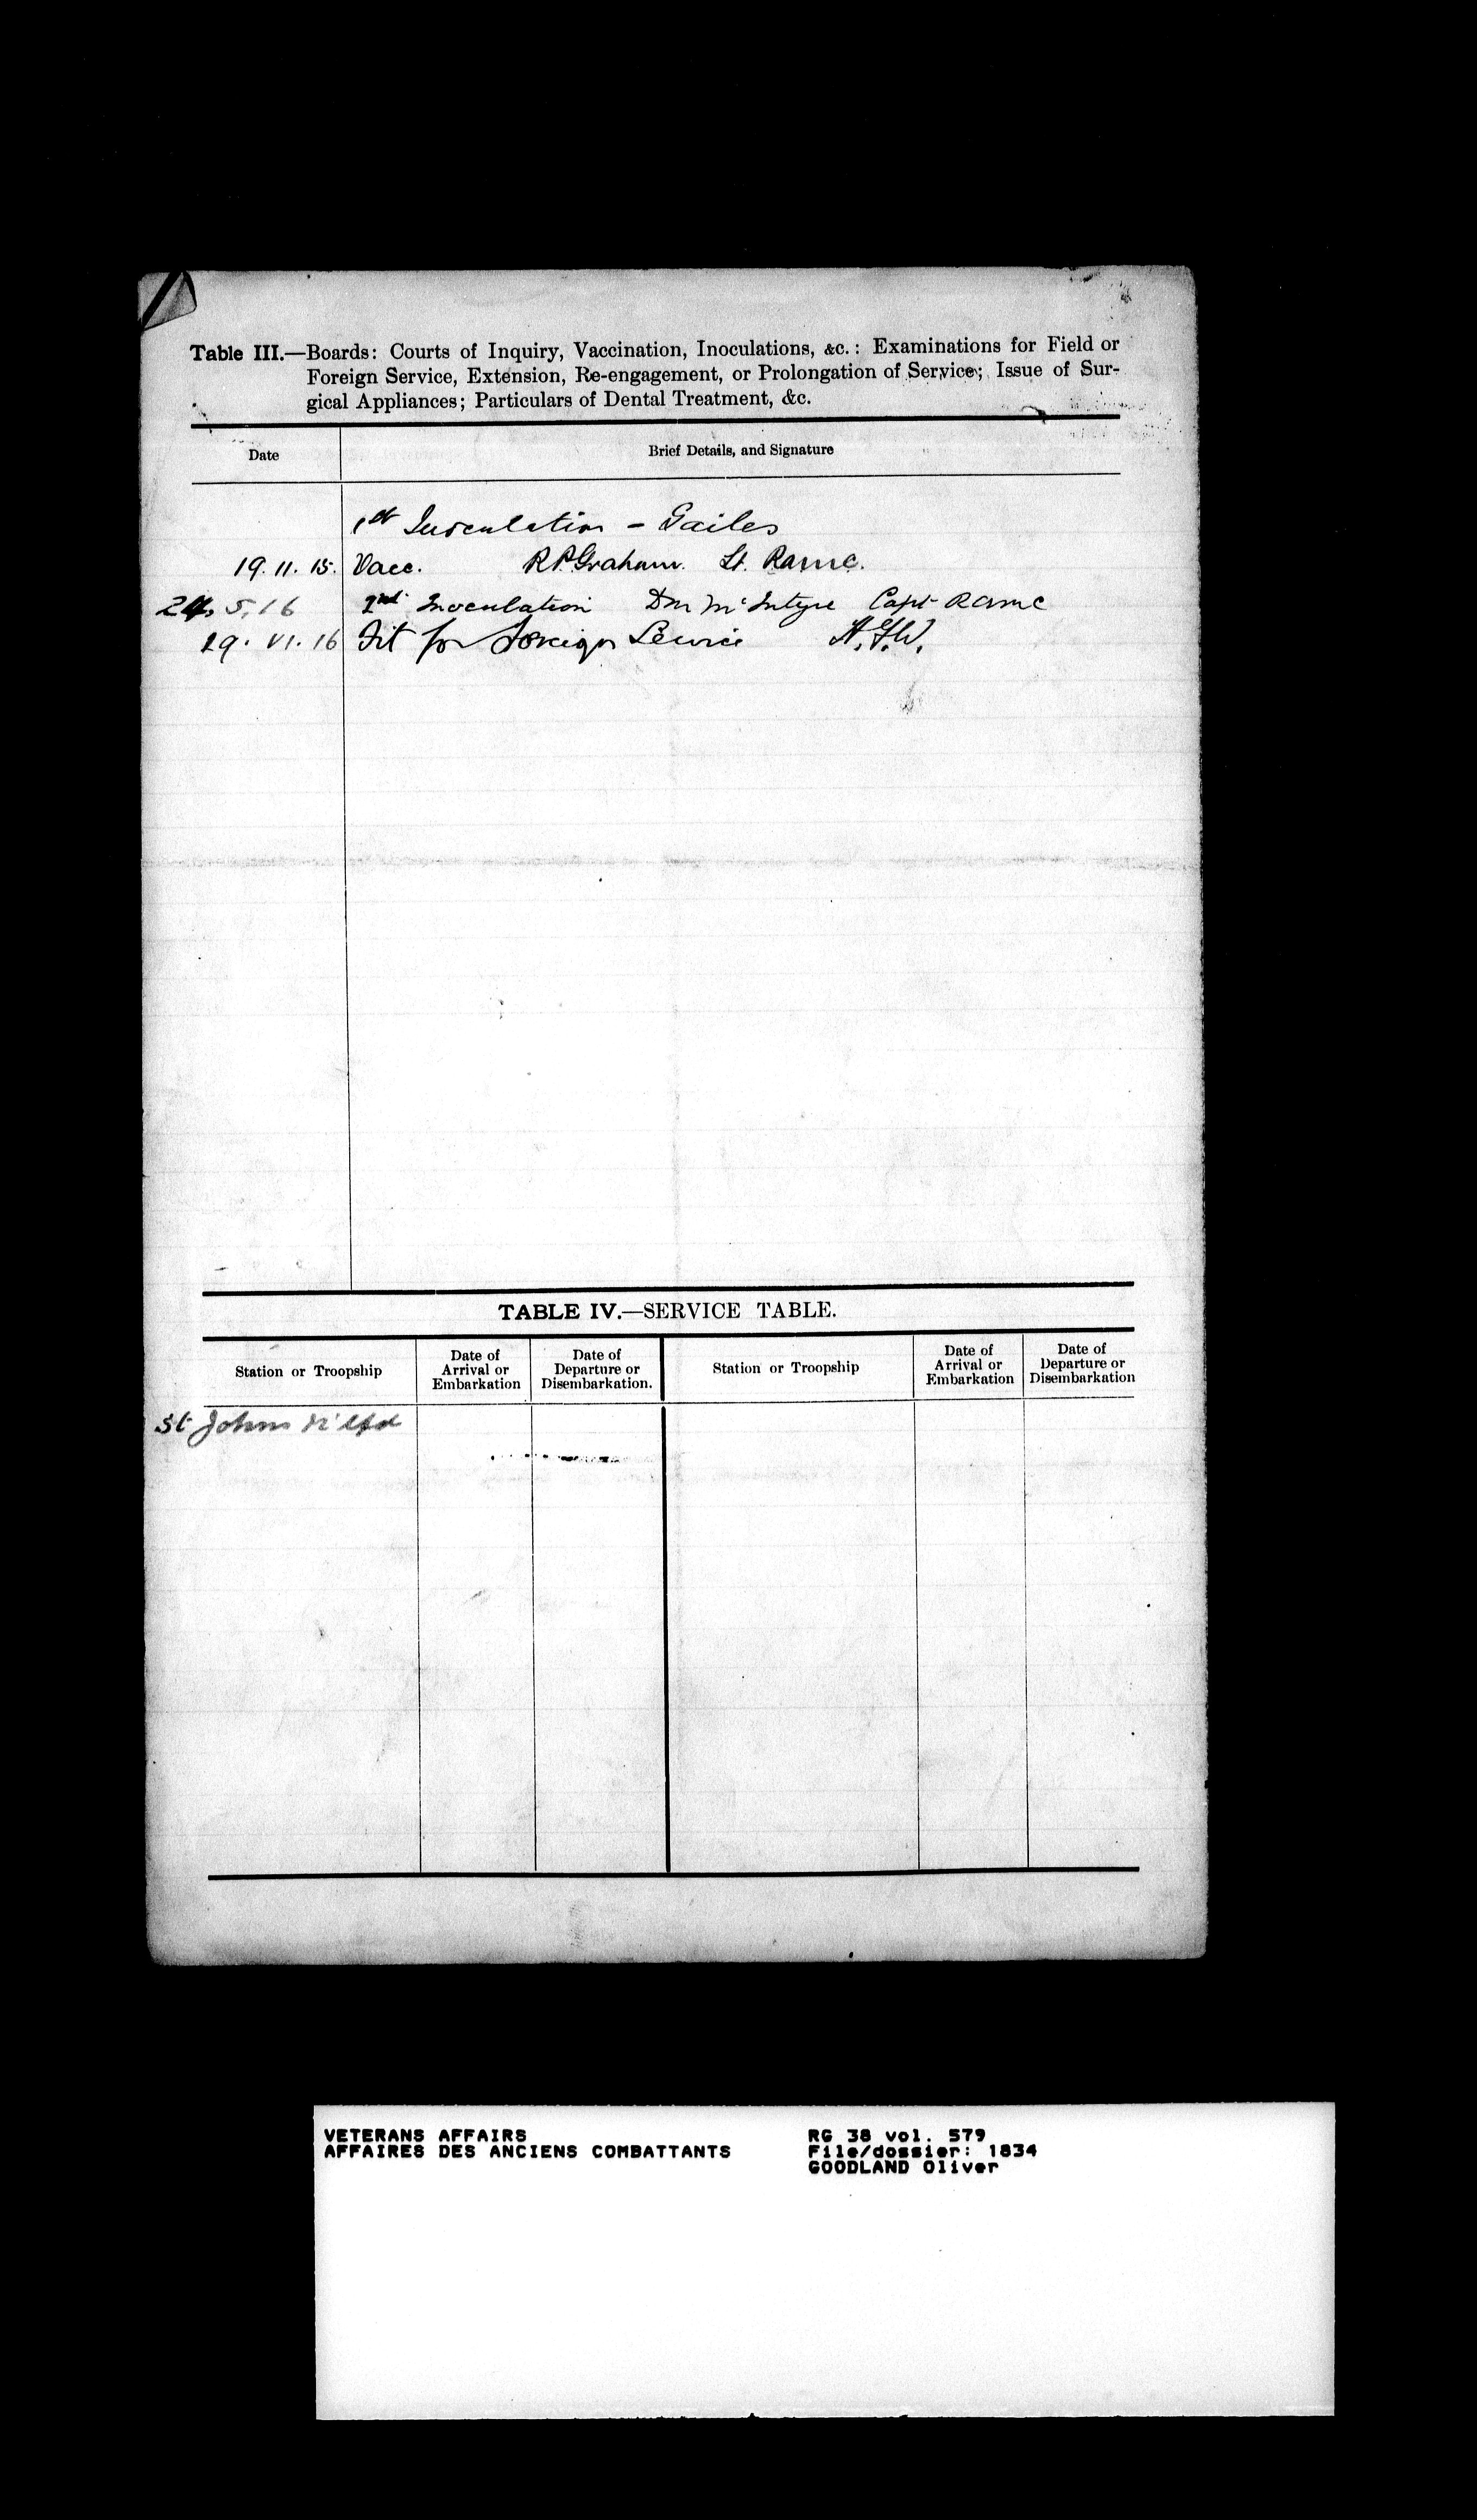 Table III.—Boards: Courts of Inquiry, Vaccination, Inoculations, &c.: Examinations for Field or
Foreign Service, Extension, Re-engagement, or Prolongation of Service; Issue of Sur-
gical Appliances; Particulars of Dental Treatment, &c.
Date Brief Details, and Signature
1st Inoculation - Gailes
19.11.15. Vacc. R P Graham. Lt. Ramc.
24.5.16 2nd Inoculation Dm McIntyre Capt RAMC
19.VI.16 Fit for foreign Service
TABLE IV.—SERVICE TABLE.
Station or Troopship Date of Arrival or Embarkation Date of Departure or Disembarkation. Station or Troopship Date of Arrival or Embarkation Date of Departure or Disembarkation
St Johns N'fld
VETERANS AFFAIRS RG 38 vol. 579
AFFAIRES DES ANCIENS COMBATTANTS File/dossier: 1834
GOODLAND Oliver